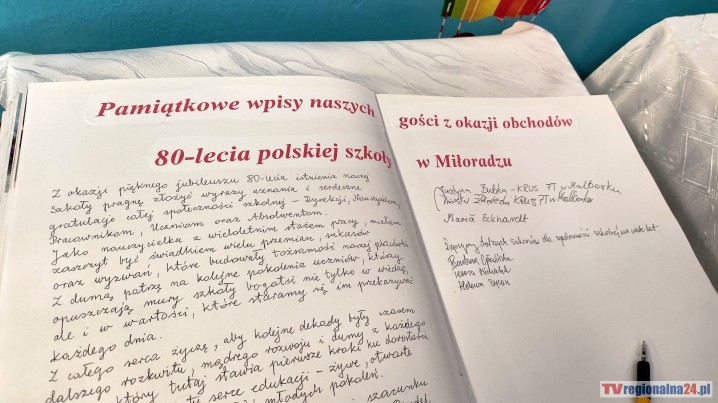 Pamiątkowe wpisy naszych gości z okazji obchodów
80-lecia polskiej szkoły w Miłoradzu
Z okazji pięknego jubileuszu 80-lecia istnienia naszej
Szkoły pragnę złożyć wyrazy uznania i serdeczne
gratulacje całej społeczności szkolnej - Dyrekcji, Nauczycielom,
Pracownikom, Uczniom oraz Absolwentom.
Jako nauczycielka z wieloletnim stażem pracy, miałam
zaszczyt być świadkiem wielu przemian, sukcesów
oraz wyzwań, które budowały tożsamość naszej placówki
Z dumą patrzę na kolejne pokolenia uczniów, którzy
opuszczają mury szkoły bogatsi nie tylko w wiedzę,
ale i w wartości, które staramy się im przekazywać
każdego dnia.
Z całego serca życzę, aby kolejne dekady były czasem
dalszego rozkwitu, mądrego rozwoju i dumy z każdego
który tutaj stawia pierwsze kroki ku dorosłości
serce edukacji - żywe, otwarte
młodych pokoleń.
szacunku
Justyna - KRUS PT w Malborku
KRUS PT w Malborku
Maria Eckhardt
dalszych sukcesów dla społeczności szkolnej lat
Barbara
Teresa
Helena
TVregionalna24.pl